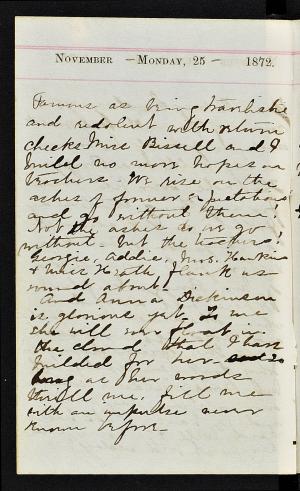 November - Monday, 25 - 1872.
Famous as being
and redolent with return
checks Miss Bissell and I
build no more hopes on
teachers. We rise on the
ashes of former expectations
and go without them!
Not the ashes do we go
without. but the teachers!
Georgie, Addie, Mrs. Hawkins
& Miss Heath flank us
round about!
And Anna Dickinson
is glorious yet. To me
she will ever float in
the cloud that I have
builded for her
as her words
thrill me, fill me
with an impulse never
known before.